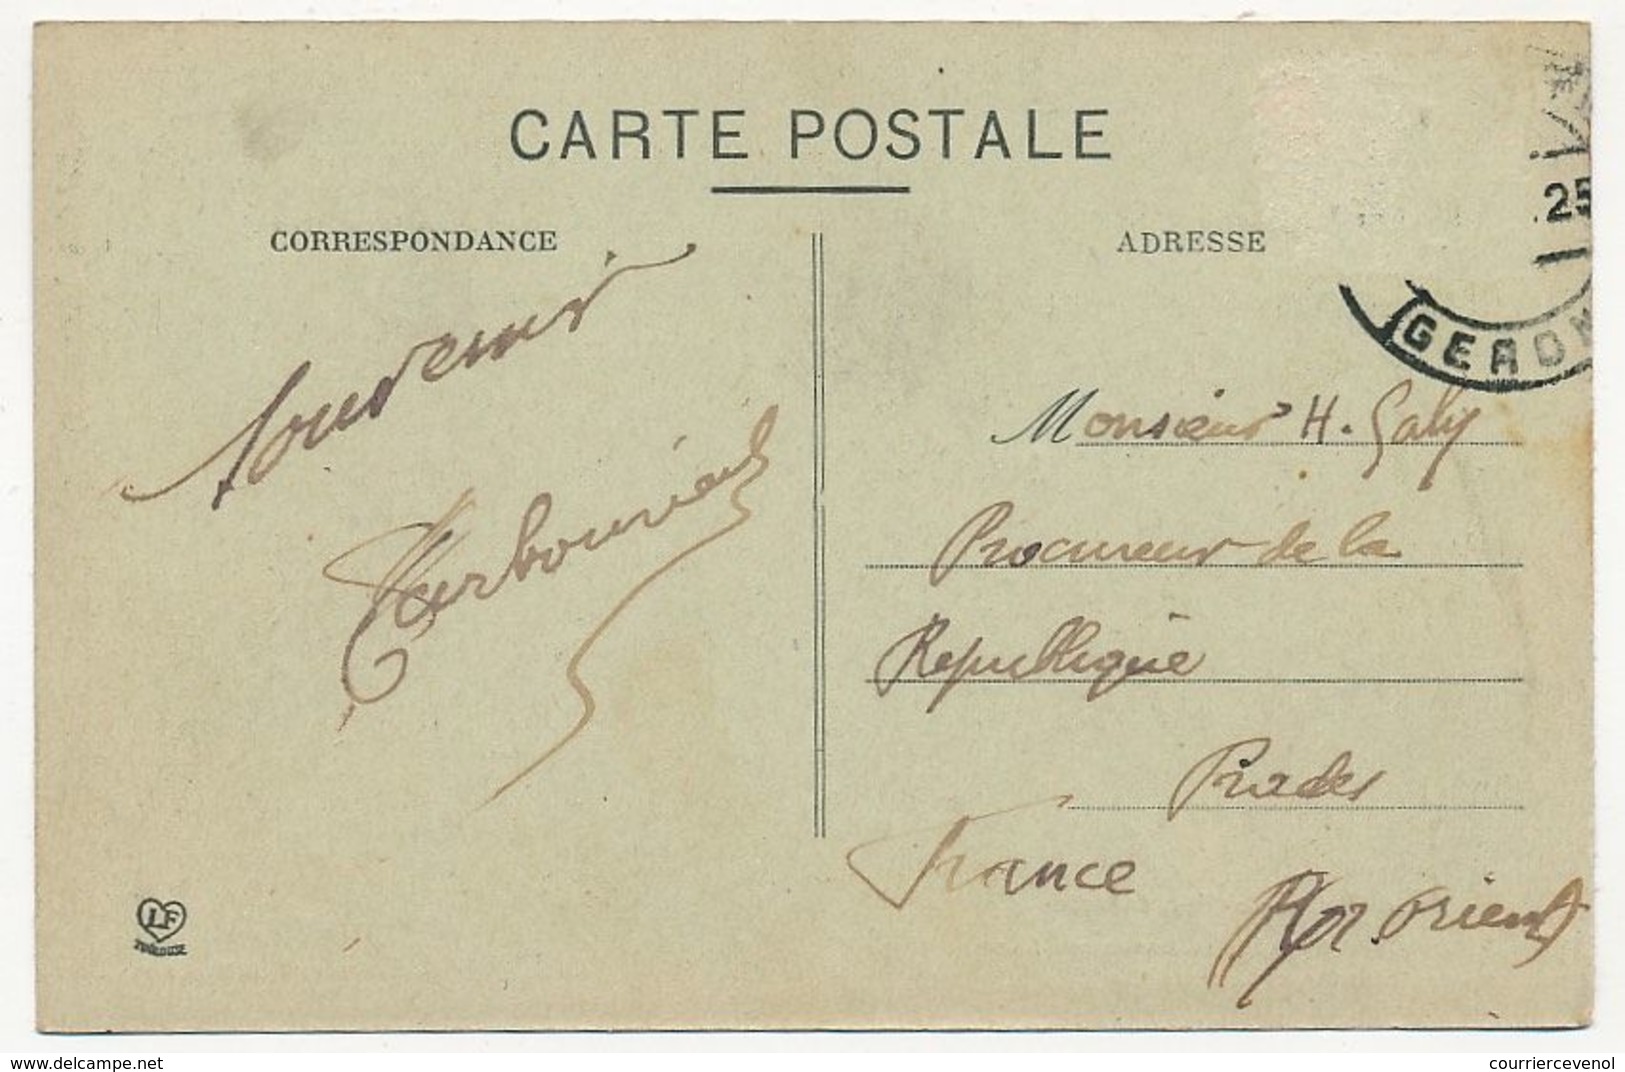 CARTE POSTALE
CORRESPONDANCE
ADRESSE
25
GERON
Souvenir
Tarbouriech
Monsieur H. Galy
Procureur de la
République
Prades
France
Pyr. Orient
LF
TOULOUSE
delcampe.net
courriercevenol